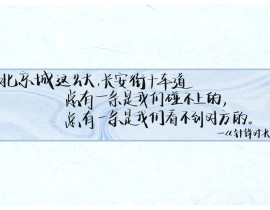 北京城这么大，长安街十车道
总有一条是我们碰不上的，
总有一条是我们看不到对方的。
—《针锋对